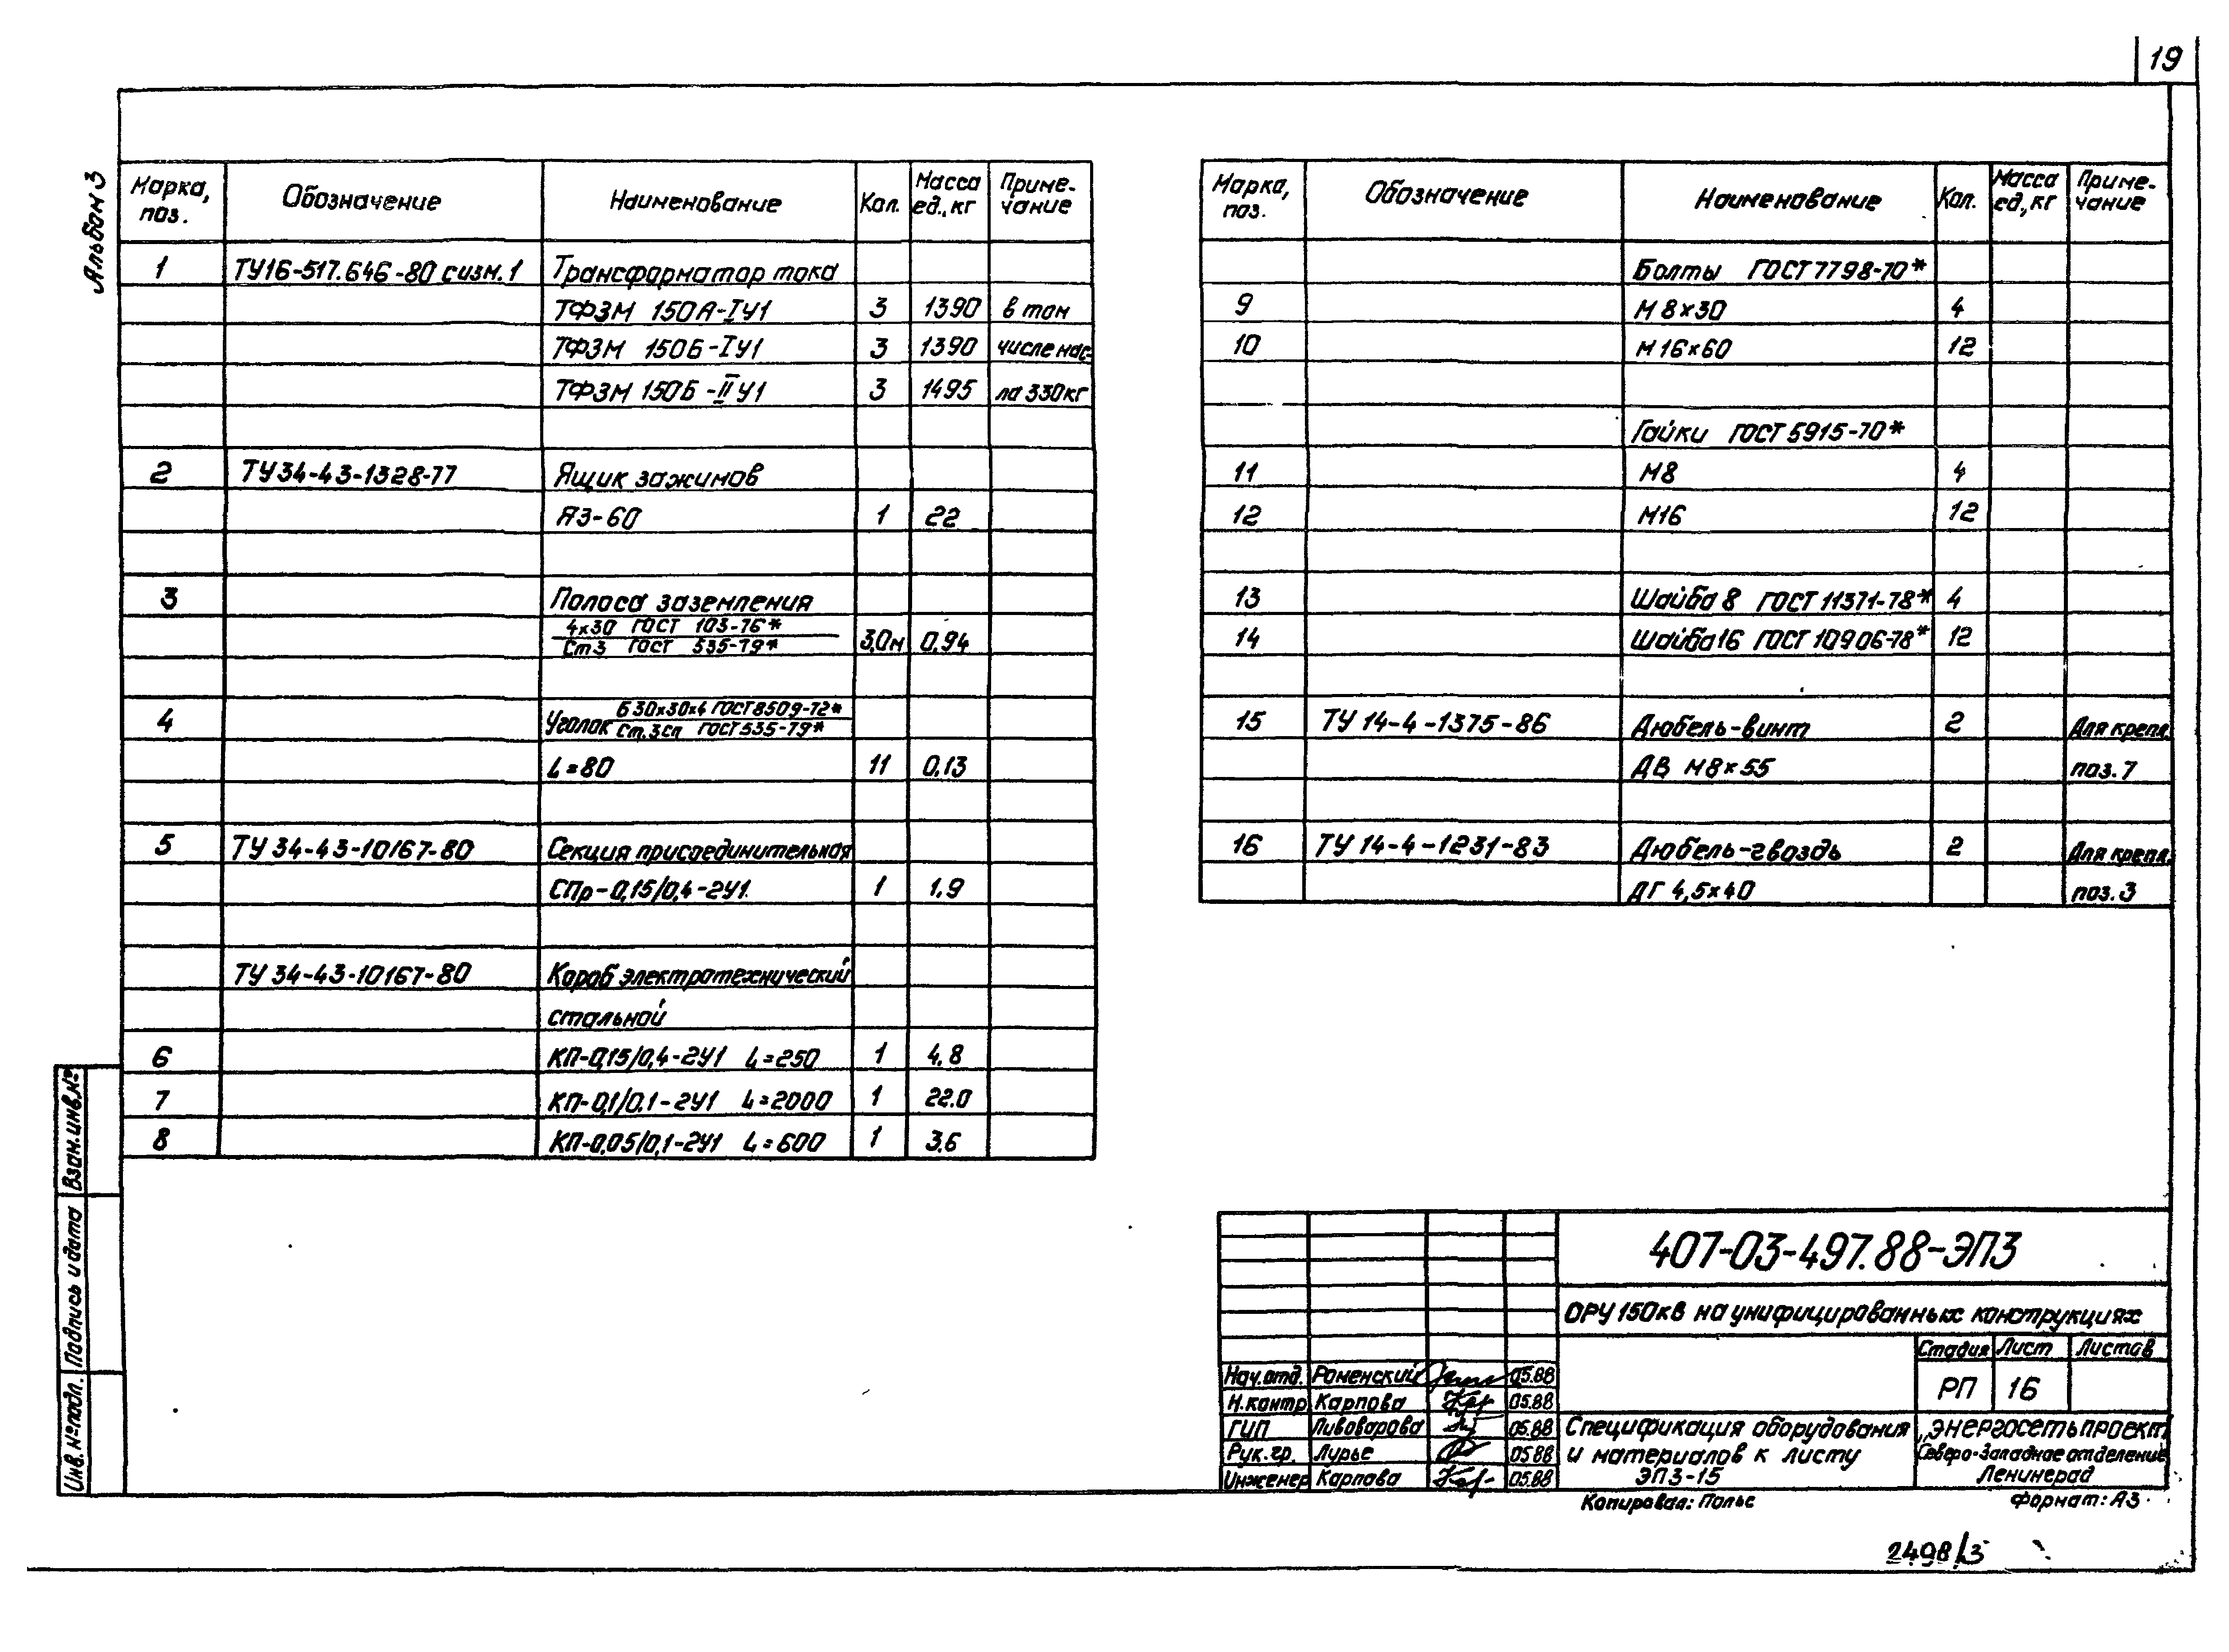 19
Альбом 3
Марка, поз. Обозначение Наименование Кол. Масса ед., кг Приме-чание
1 ТУ16-517.646-80 с изм. 1 Трансформатор тока
ТФЗМ 150А-IУ1 3 1390 в том
ТФЗМ 150Б-IУ1 3 1390 числе мас-
ТФЗМ 150Б-IIУ1 3 1495 ла 330кг
2 ТУ34-43-1328-77 Ящик зажимов
ЯЗ-60 1 22
3 Полоса заземления
4х30 ГОСТ 103-76*
Ст3 ГОСТ 535-79* 3,0м 0,94
4 Уголок Б 30х30х4 ГОСТ 8509-72*
Ст.3сп ГОСТ 535-79*
L=80 11 0,13
5 ТУ 34-43-10167-80 Секция присоединительная
СПр-0,15/0,4-2У1 1 1,9
ТУ 34-43-10167-80 Короб электротехнический
стальной
6 КП-0,15/0,4-2У1 L=250 1 4,8
7 КП-0,1/0,1-2У1 L=2000 1 22.0
8 КП-0,05/0,1-2У1 L=600 1 3,6
Марка, поз. Обозначение Наименование Кол. Масса ед., кг Приме-чание
Болты ГОСТ 7798-70*
9 М 8х30 4
10 М 16х60 12
Гайки ГОСТ 5915-70*
11 М8 4
12 М16 12
13 Шайба 8 ГОСТ 11371-78* 4
14 Шайба 16 ГОСТ 10906-78* 12
15 ТУ 14-4-1375-86 Дюбель-винт 2 Для крепл.
ДВ М8х55 поз. 7
16 ТУ 14-4-1231-83 Дюбель-гвоздь 2 Для крепл.
ДГ 4,5х40 поз. 3
Взам. инв. №
Подпись и дата
Инв. № подл.
407-03-497.88-ЭП3
ОРУ 150кВ на унифицированных конструкциях
Стадия Лист Листов
РП 16
Нач. отд. Роменский 05.88
Н. контр. Карпова 05.88
ГИП Пивоварова 05.88
Рук. гр. Лурье 05.88
Инженер Карпова 05.88
Спецификация оборудования
и материалов к листу
ЭП3-15
„Энергосетьпроект"
Северо-Западное отделение
Ленинград
Копировал: Полье
Формат: А3
2498/3